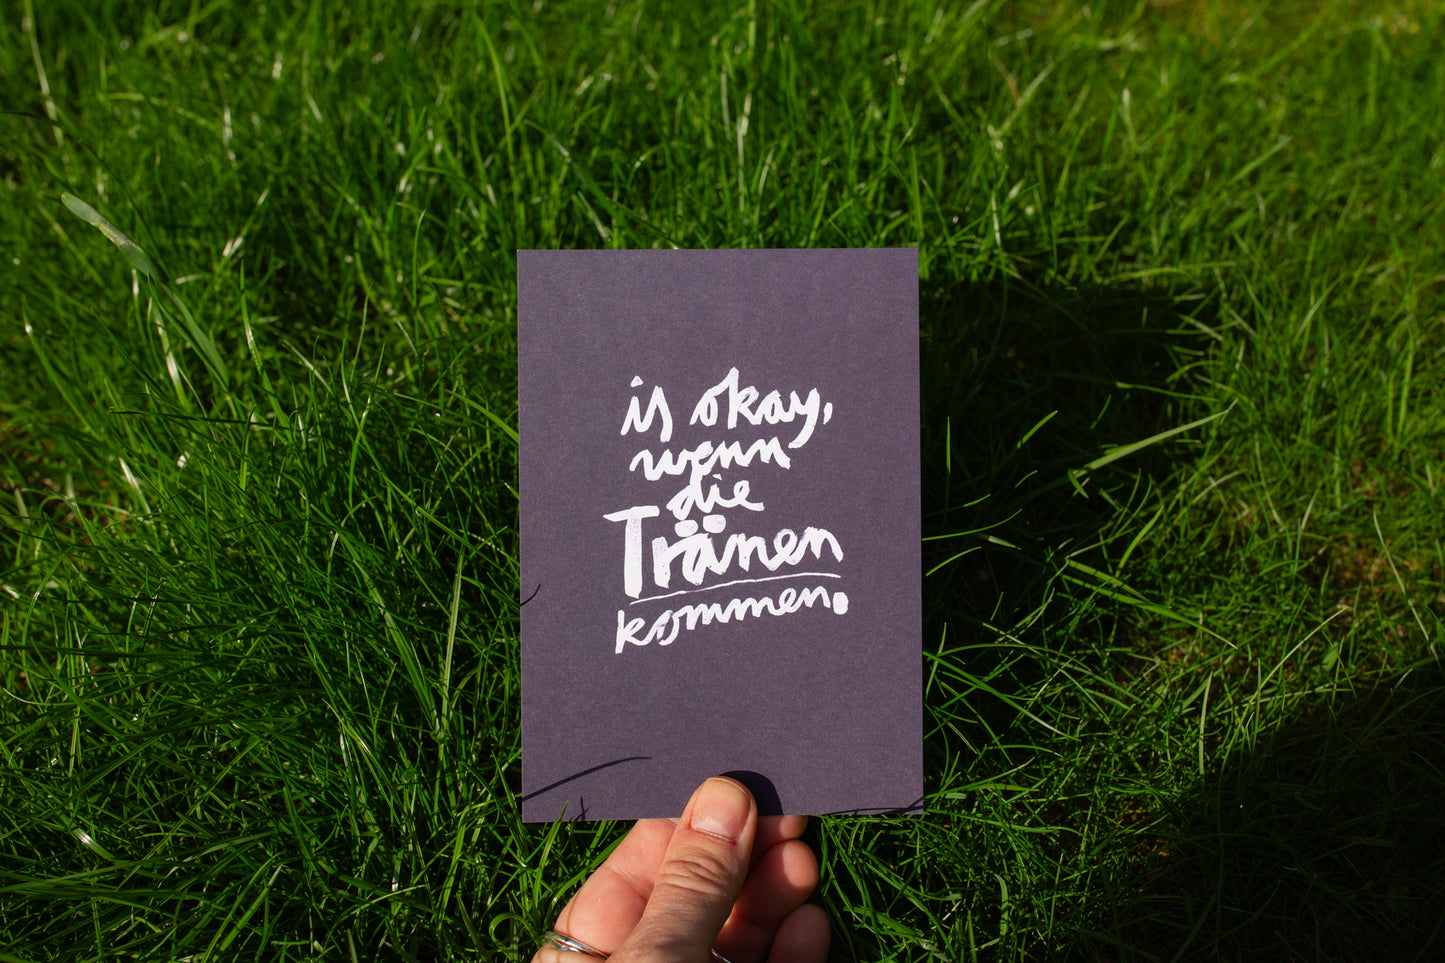 is okay,
wenn
die
Tränen
kommen.